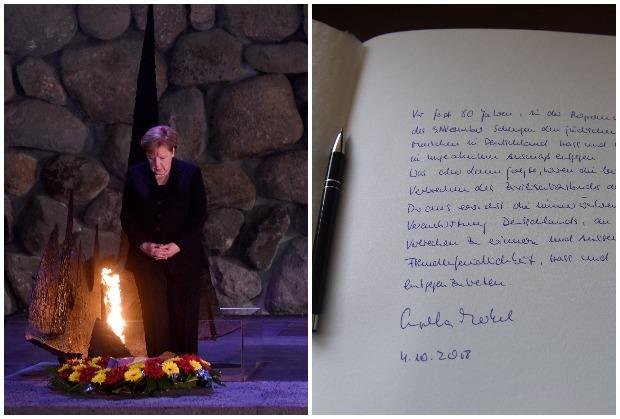 Vor fast 80 Jahren, in der Pogromn
des 9. November schlugen den jüdischen
Menschen in Deutschland Hass und
in ungeahntem Ausmaß entgegen.
Was aber dann folgte, waren die
Verbrechen des Zivilisationsbruchs der
Daraus erwächst die immerwährende
Verantwortung Deutschlands, an
Verbrechen zu erinnern und Antisem
Fremdenfeindlichkeit, Hass und
entgegenzutreten.
Angela Merkel
4.10.2018